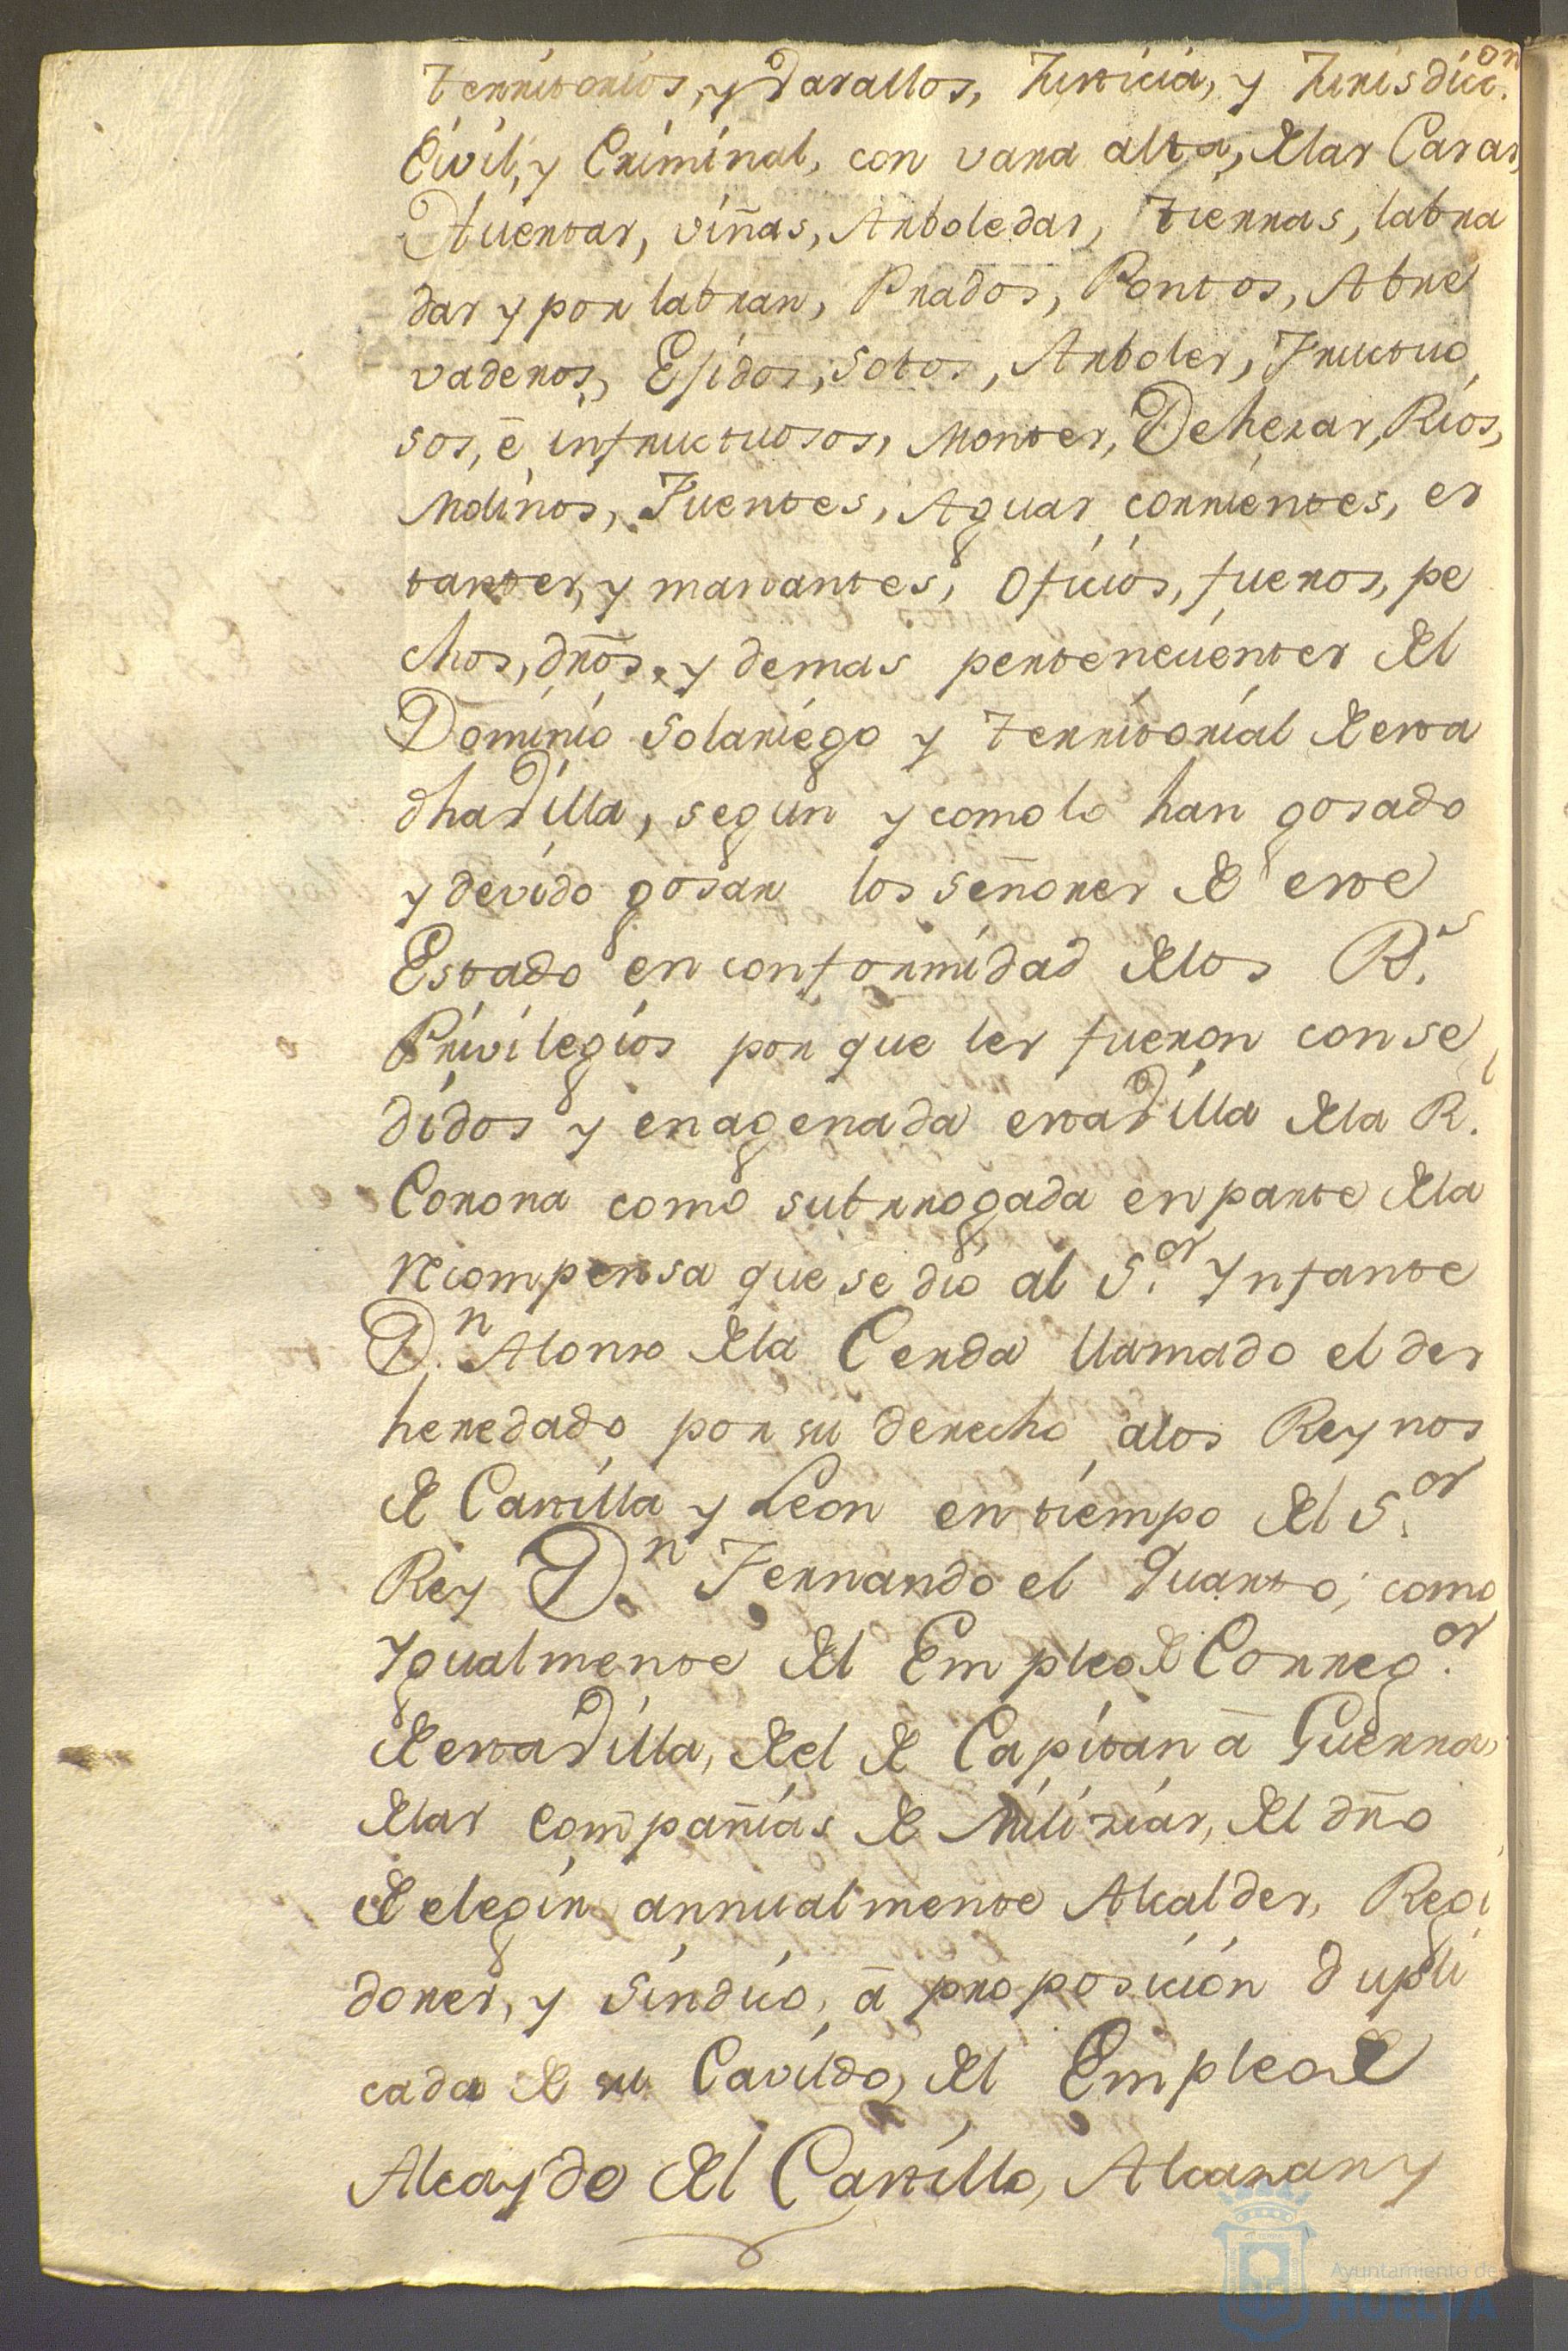 territorios, y Vasallos, Justicia, y Jurisdicc.on
Civil, y Criminal, con vara alta, delas Casas,
Huertas, viñas, Arboledas, tierras, labra
das y por labrar, Prados, Pontos, Abre
vaderos, Exidos, sotos, Arboles, Fructuo
sos, é infructuosos, Montes, Dehezas, Rios,
Molinos, Fuentes, Aguas corrientes, es
tantes, y manantes, oficios, fueros, pe
chos, dros, y demas pertenecientes del
Dominio solariego y territorial de esta
dha Villa, segun y como lo han gosado
y devido gosar los señores de este
Estado en conformidad delos R.s
Privilegios por que les fueron conse
didos y enagenada esta Villa dela R.l
Corona como subrrogada en parte dela
recompensa que se dio al S.or Ynfante
D.n Alonso dela Cerda llamado el des
heredado por su derecho alos Reynos
de Castilla y Leon en tiempo del S.or
Rey D.n Fernando el Quarto; como
Ygualmente del Empleo de Correg.or
de esta Villa, del de Capitan á Guerra,
delas Compañias de Milizias, del dro
de elegir annualmente Alcaldes, Regi
dores, y Sindico, á proposicion dupli
cada de su Cavildo, del Empleo de
Alcayde del Castillo, Alcazar y
Ayuntamiento de
HUELVA